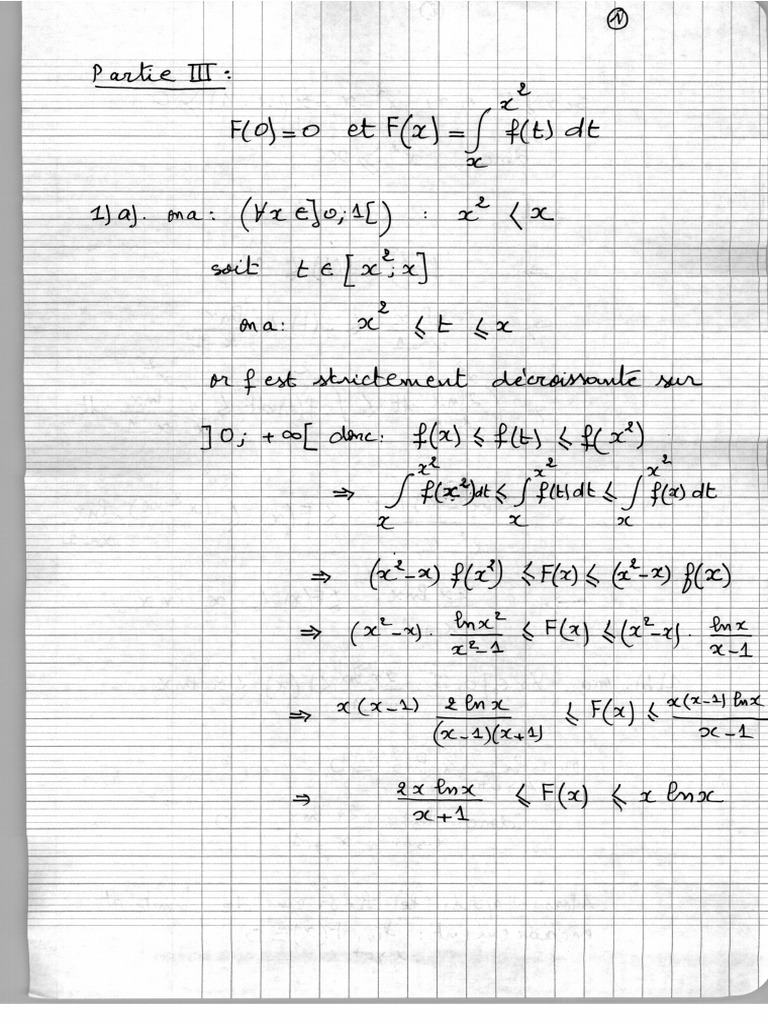 N
Partie III :
F(0) = 0 et F(x) = ∫ₓ^{x²} f(t) dt
1) a). on a : (∀x ∈ ]0; 1[) : x² < x
soit t ∈ [x²; x]
on a : x² ⩽ t ⩽ x
or f est strictement décroissante sur
]0; +∞[ donc : f(x) ⩽ f(t) ⩽ f(x²)
⇒ ∫ₓ^{x²} f(x²) dt ⩽ ∫ₓ^{x²} f(t) dt ⩽ ∫ₓ^{x²} f(x) dt
⇒ (x²-x) f(x²) ⩽ F(x) ⩽ (x²-x) f(x)
⇒ (x²-x) . \frac{ln x²}{x²-1} ⩽ F(x) ⩽ (x²-x) . \frac{ln x}{x-1}
⇒ x(x-1) \frac{2 ln x}{(x-1)(x+1)} ⩽ F(x) ⩽ \frac{x(x-1) ln x}{x-1}
⇒ \frac{2x ln x}{x+1} ⩽ F(x) ⩽ x ln x